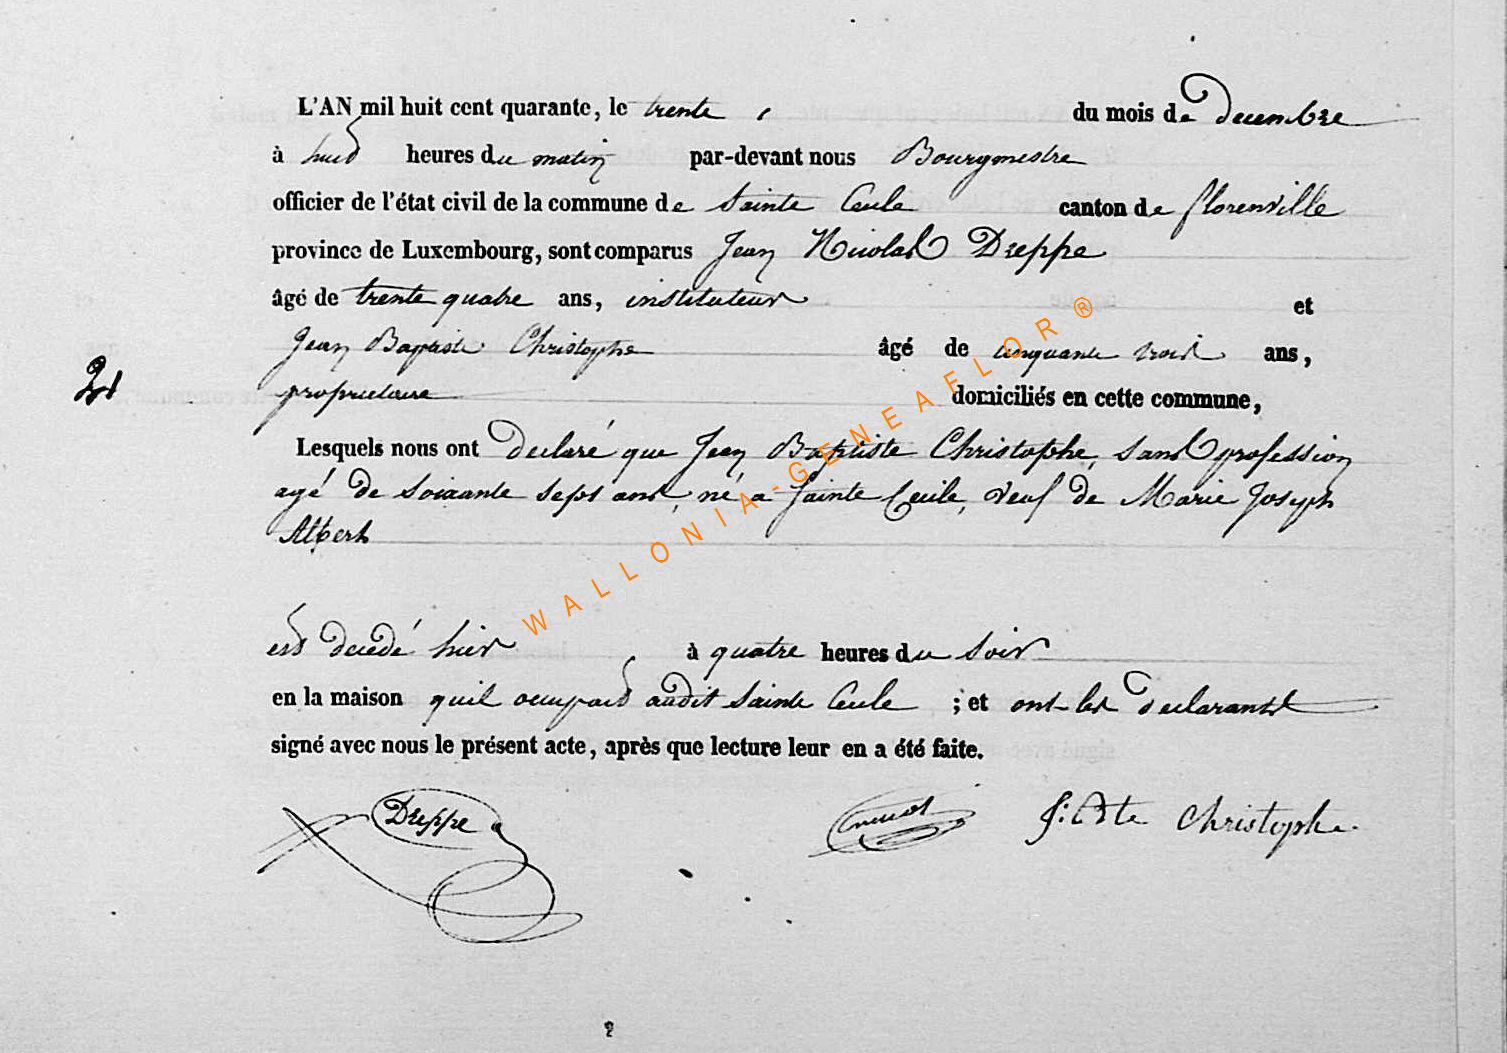 L'AN mil huit cent quarante, le trente, du mois de decembre
à huit heures du matin par-devant nous Bourgmestre
officier de l'état civil de la commune de Sainte Cecile canton de florenville
province de Luxembourg, sont comparus Jean Nicolas Dreppe
âgé de trente quatre ans, instituteur et
Jean Baptiste Christophe âgé de cinquante trois ans,
21
proprietaire domiciliés en cette commune,
Lesquels nous ont declaré que Jean Baptiste Christophe, sans profession
agé de soixante sept ans, né a Sainte Cecile, veuf de Marie Joseph
Alpert
est decedé hier à quatre heures du soir
en la maison quil occupait audit Sainte Cecile ; et ont les declarants
signé avec nous le présent acte, après que lecture leur en a été faite.
Dreppe J: Bte Christophe
WALLONIA-GENEAFLOR®